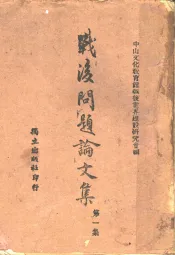 中山文化教育館戰後世界建設研究會編
戰後問題論文集
第一集
獨立出版社印行